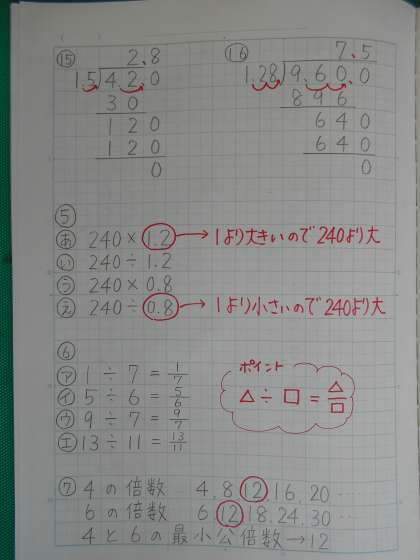 ⑮ 2.8
1.5)4.2.0
30
120
120
0
⑯ 7.5
1.28)9.60.0
896
640
640
0
⑤
あ 240×1.2 → 1より大きいので240より大
い 240÷1.2
う 240×0.8
え 240÷0.8 → 1より小さいので240より大
⑥
ア 1÷7=1/7
イ 5÷6=5/6
ウ 9÷7=9/7
エ 13÷11=13/11
ポイント
△÷□=△/□
⑦ 4の倍数 4.8.12.16.20……
6の倍数 6.12.18.24.30……
4と6の最小公倍数→12